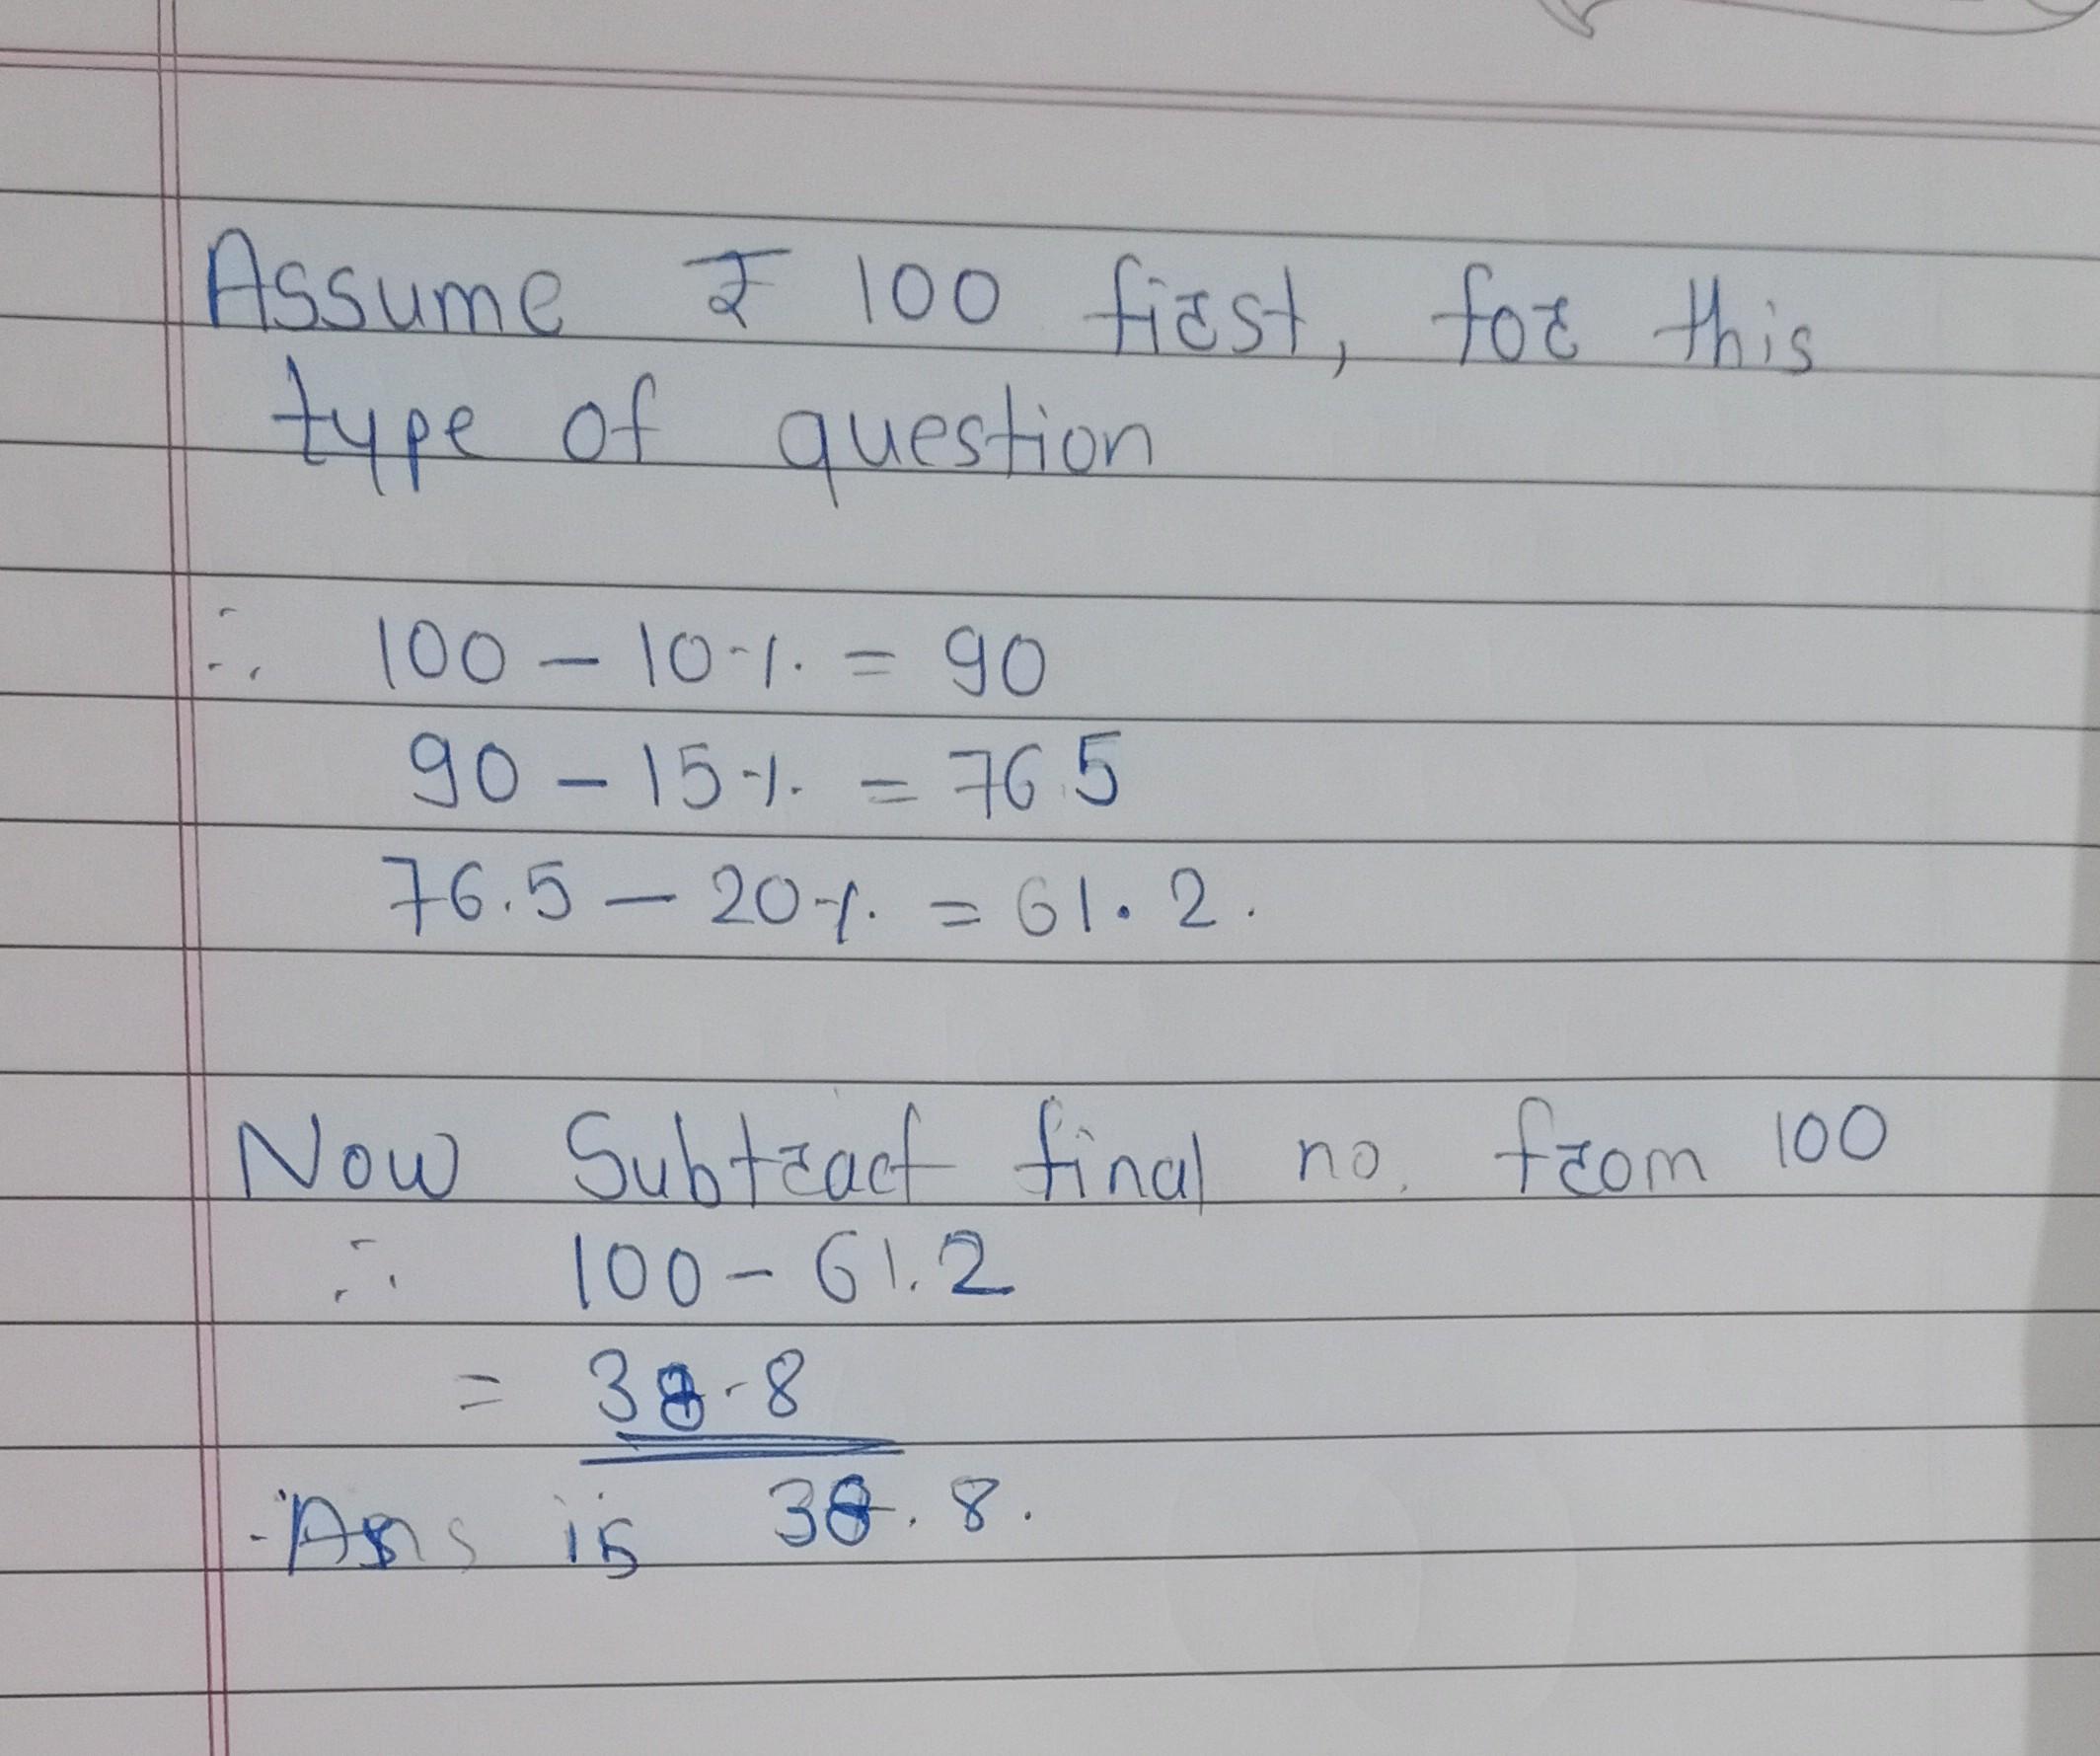 Assume ₹ 100 first, for this
type of question
∴ 100 – 10% = 90
90 – 15% = 76.5
76.5 – 20% = 61.2.
Now Subtract final no. from 100
∴ 100 – 61.2
= 38.8
Ans is 38.8.